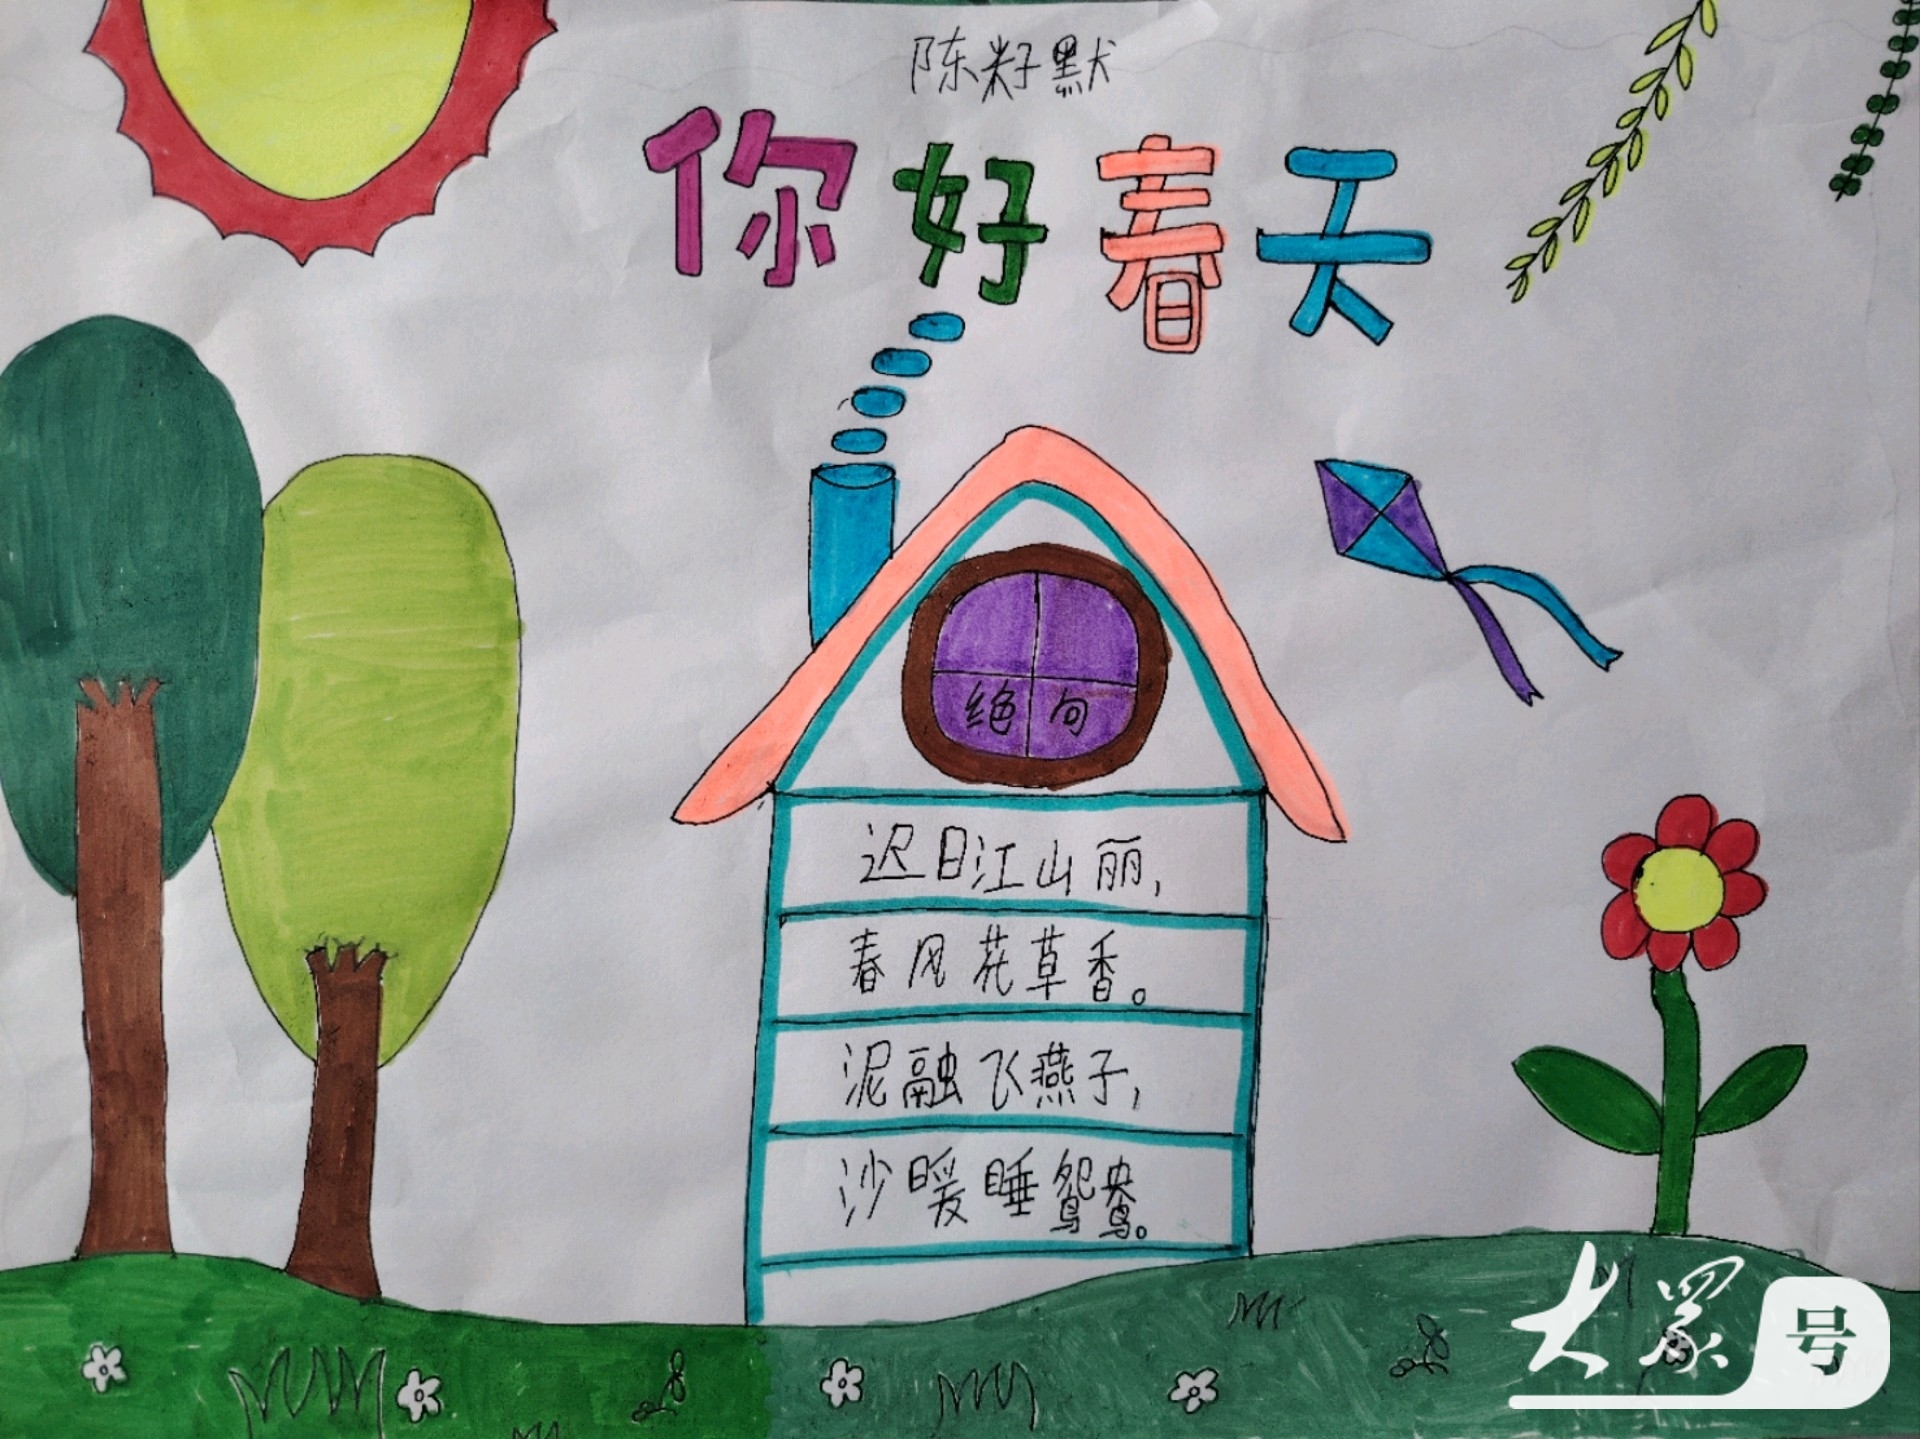 陈籽默
你好春天
绝句
迟日江山丽,
春风花草香。
泥融飞燕子,
沙暖睡鸳鸯。
大象号